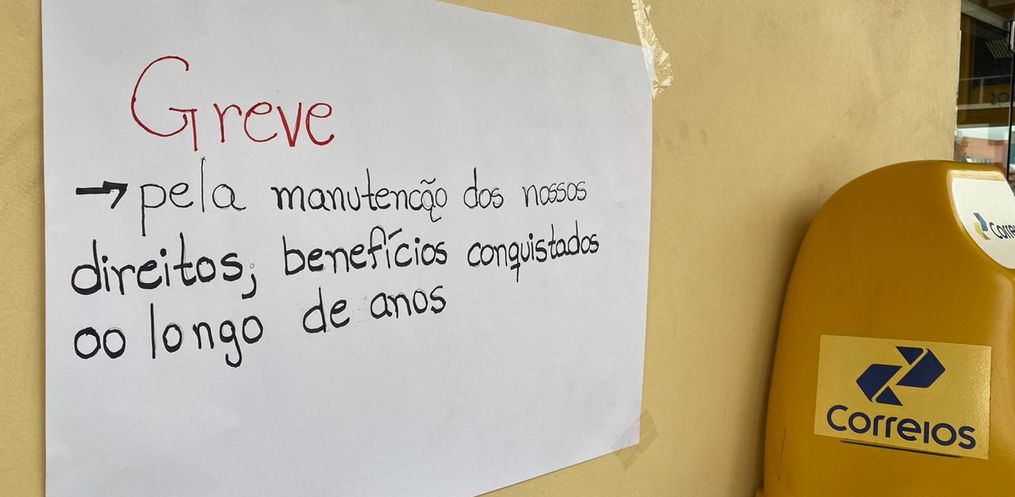 Greve
→ pela manutenção dos nossos
direitos, benefícios conquistados
ao longo de anos
Correios